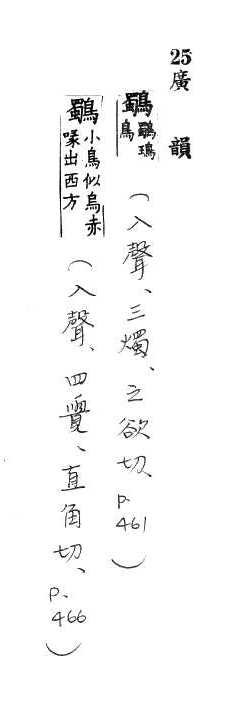 25廣 韻
鸀 鸀鳿鳥 (入聲、三燭、之欲切、p.461)
鸀 小鳥似烏赤喙出西方 (入聲、四覺、直角切、p.466)